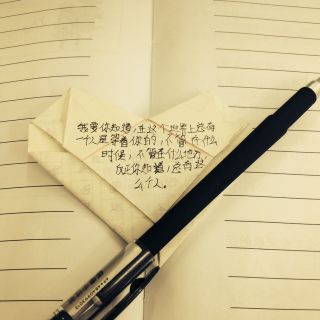 我要你知道,在这个世界上总有
一个人是等着你的,不管在什么
时候,不管在什么地方,
反正你知道,总有这
么个人。